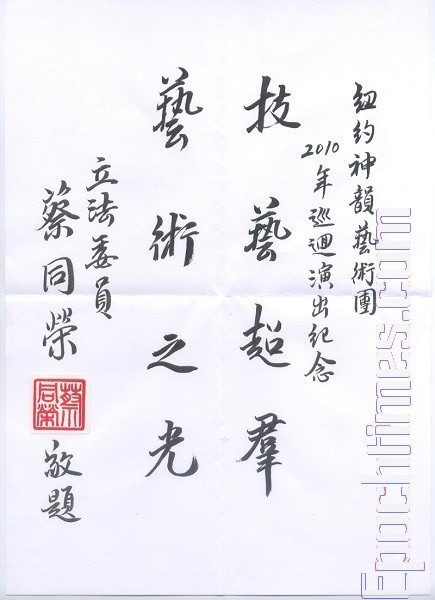 紐約神韻藝術團
2010年巡迴演出紀念
技藝超羣
藝術之光
立法委員
蔡同榮
蔡同榮
敬題
Epochtimes.com